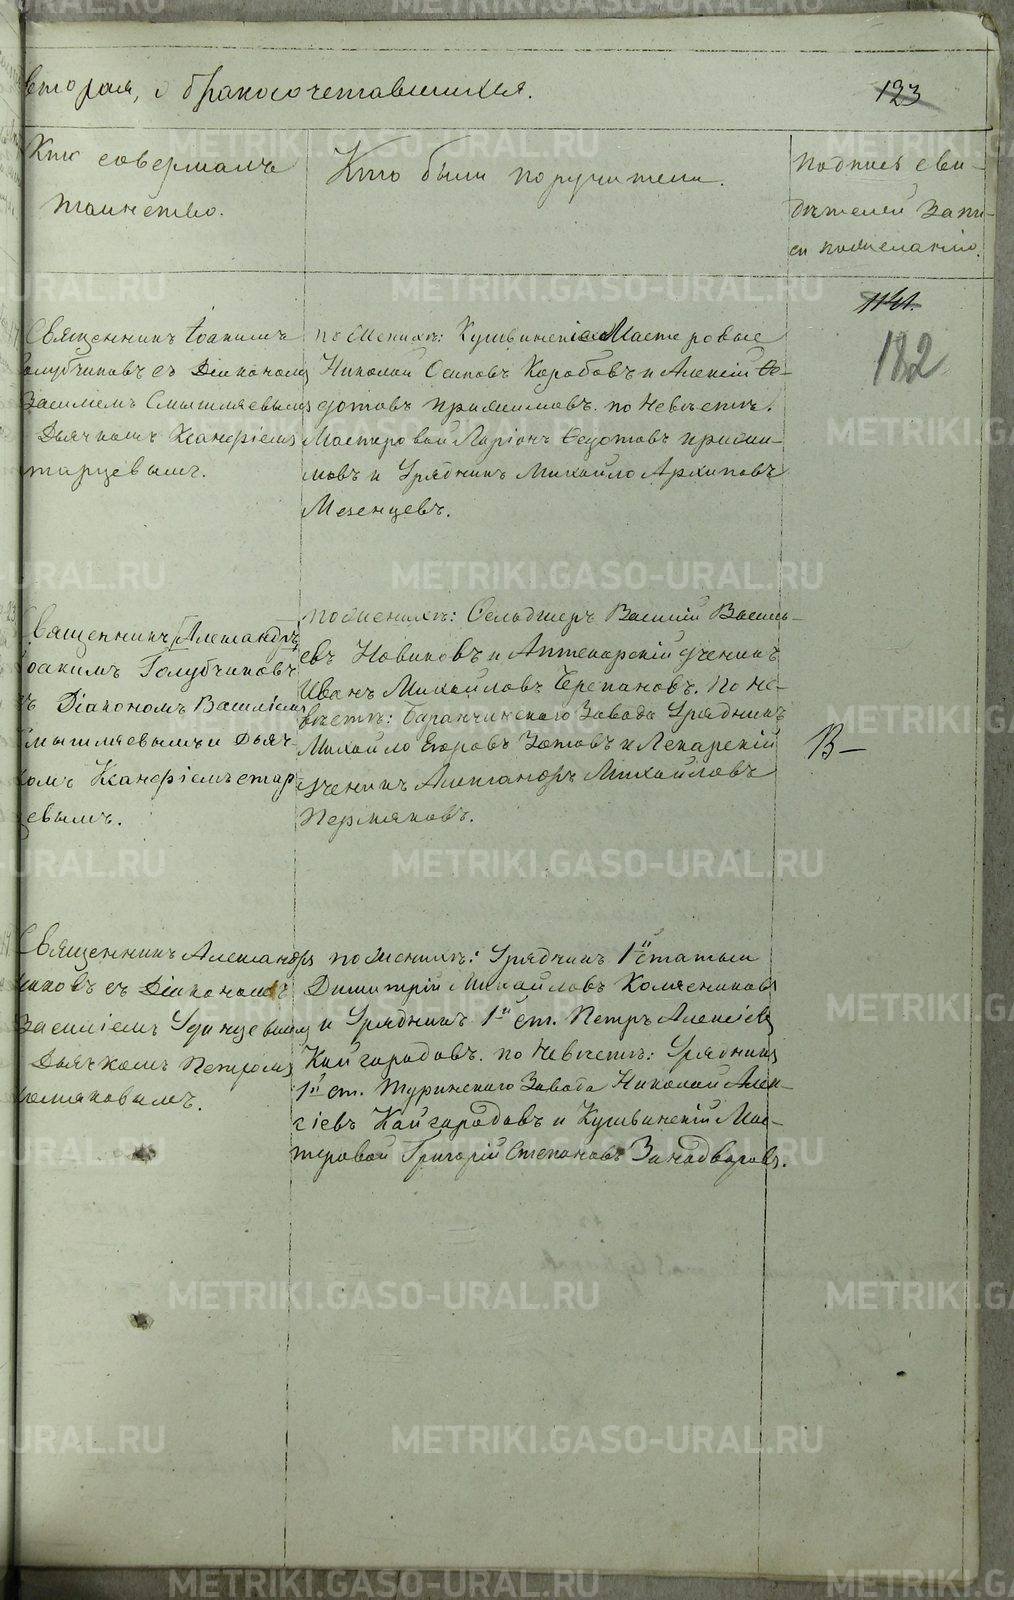 вторая, о бракосочетавшихся.
123
Кто совершалъ
таинство.
Кто были поручители.
Подпись сви-
дѣтелей запи-
си по желанію.
1141.
182
Священникъ Іоакимъ
олубчиковъ съ Діакономъ
Василіемъ Смышляевымъ
Дьячкомъ Ксанфіемъ
тарцевымъ.
по женихѣ: Кушвинскіе Мастеровые
Николай Осиповъ Коробовъ и Алексѣй Ѳе-
дотовъ по невѣстѣ:
Мастеровой Ларіонъ Ѳедотовъ
и Урядникъ Михайло Архиповъ
Мезенцевъ.
Священникъ Александръ
оакимъ Голубчиковъ
ъ Діакономъ Василіемъ
мышляевымъ и Дьяч-
комъ Ксанфіемъ стар
евымъ.
по женихѣ: Фельдшеръ Василій Василь-
евъ Новиковъ и Аптекарскій ученикъ
Иванъ Михайловъ Черепановъ. По не-
вѣстѣ: Баранчинского Завода Урядникъ
Михайло Егоровъ Зотовъ и Лекарскій
ученикъ Александръ Михайловъ
Пермяковъ.
В—
Священникъ Александръ
иковъ съ Діакономъ
Василіемъ Удинцевымъ
Дьячкомъ Петромъ
по женихѣ: Урядникъ 1й статьи
Димитрій Михайловъ Колясниковъ
и Урядникъ 1й ст. Петръ Алексѣевъ
Кайгородовъ. по невѣстѣ: Урядникъ
1й ст. Туринского Завода Николай Алек-
сѣевъ Кайгородовъ и Кушвинскій Мас-
теровой Григорій Степановъ Занадворовъ.
METRIKI.GASO-URAL.RU